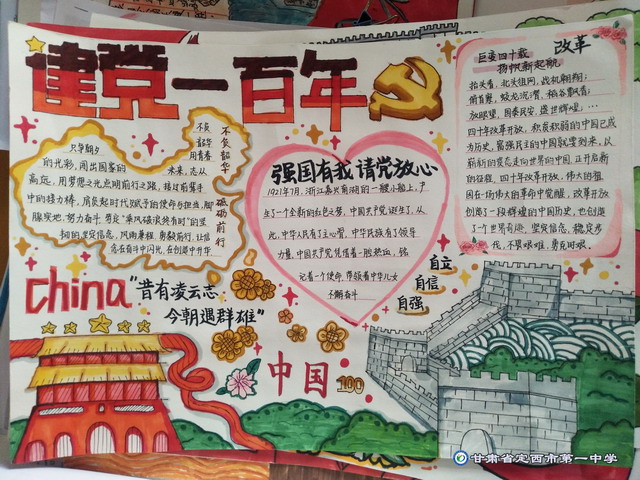 建党一百年
巨变四十载 改革
扬帆新起航
抬头看,北头组网,战机翱翔;
俯首察,蛟龙沉潜,稻谷飘香;
放眼望,国泰民安,盛世辉煌,…
四十年改革开放,积贫积弱的中国已成
为历史,富强民主的中国就要到来,以
崭新的姿态走向世界的中国,正开启新
的征程,四十年改革开放,伟大的祖
国在一场伟大的革命中觉醒,改革开放
创造了一段辉煌的中国历史,也创造
了一个世界奇迹,坚定信念,稳定步
伐,不畏艰难,勇克时艰。
不负韶华
砥砺前行
只争朝夕
不负
韶华
的光彩,闯出国家的
用青春
未来,志从
高远,用梦想之光照前行之路,接过前辈手
中的接力棒,肩负起时代赋予的使命与担当,脚
踏实地,努力奋斗,勇度"乘风破浪终有时"的坚
韧的坚定信念,风雨兼程,勇毅前行,让信
念在奋斗中闪光,在创造中升华
强国有我 请党放心
1921年7月,浙江嘉兴南湖的一艘小船上,产
生了一个全新的红色之梦,中国共产党诞生了,从
此,中华人民有了主心骨,中华民族有了领导
力量,中国共产党凭借着一腔热血,铭
记着一个使命,带领着中华儿女
不断奋斗
自立
自信
自强
China
"昔有凌云志
今朝遇群雄"
中国 100
甘肃省定西市第一中学